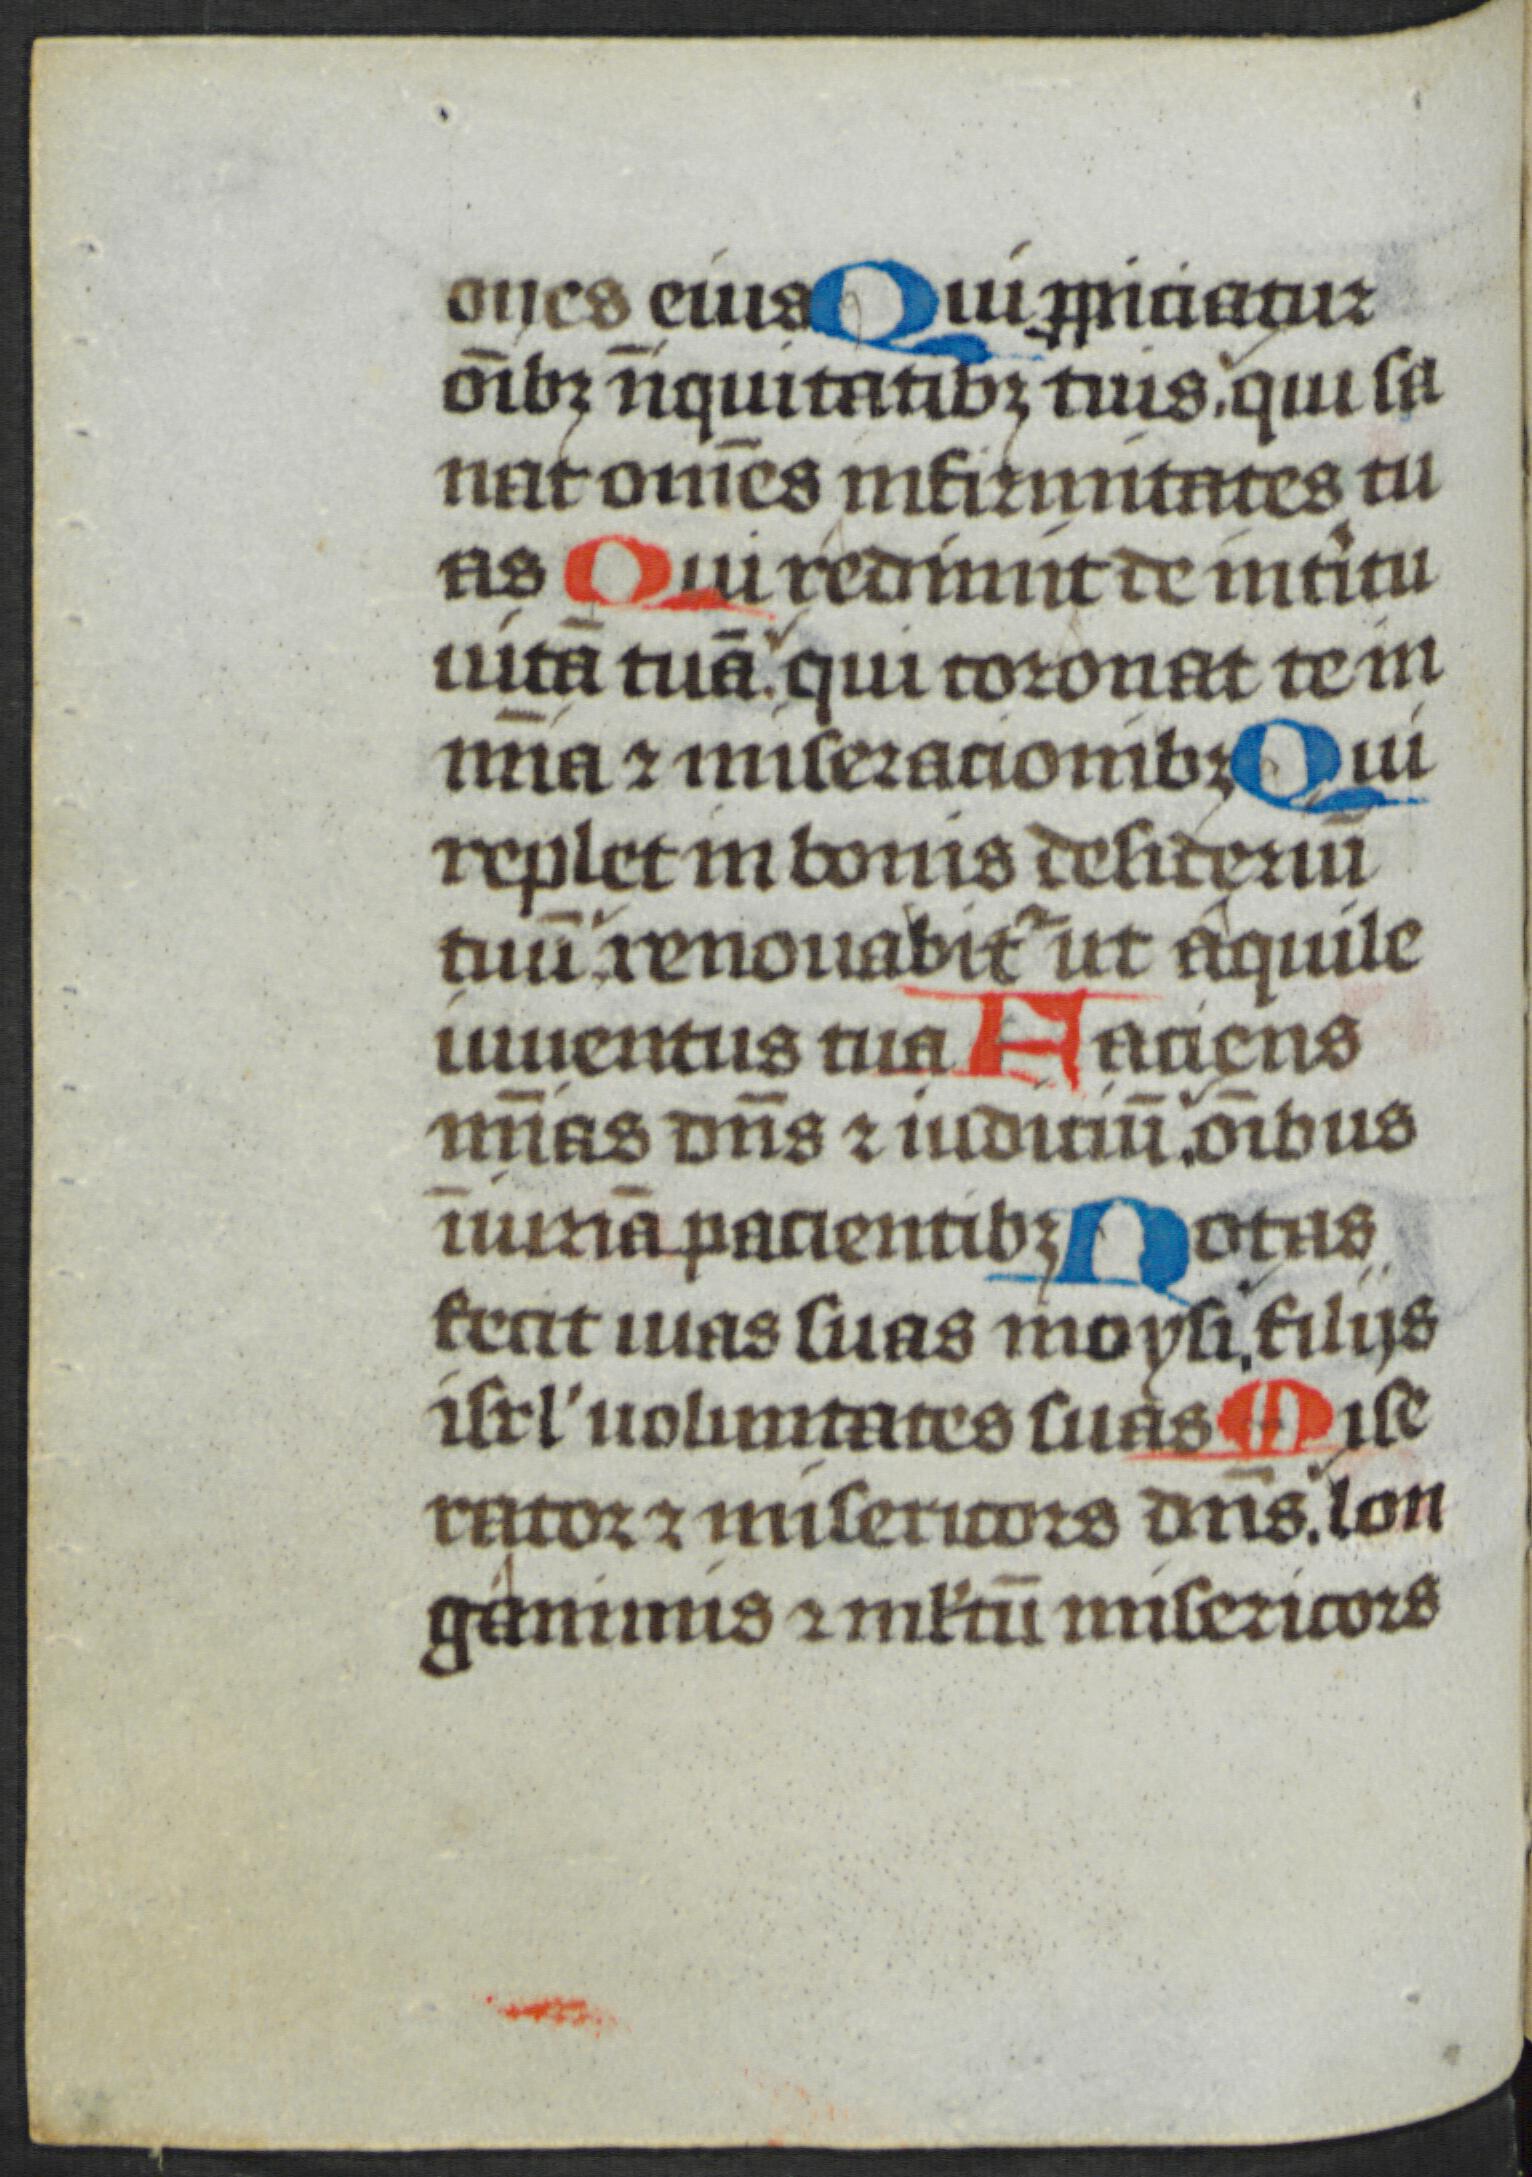 ones eius Qui ꝓpiciatur
oībꝫ īiquitatibꝫ tuis. qui sa
nat om̄es infirmitates tu
as Qui redimit de intͥitu
uitā tuā. qui coronat te in
mīa ⁊ miseracionibꝫ Qui
replet in bonis desideriū
tuū. renouabit᷑ ut aquile
iuuentus tua Faciens
mīas dn̄s ⁊ iudiciū. oībus
īiuriā pacientibꝫ Notas
fecit uias suas moysi. filijs
isrl' uoluntates suas Mise
rator ⁊ misericors dn̄s. lon
ganimis ⁊ ml'tū misericors